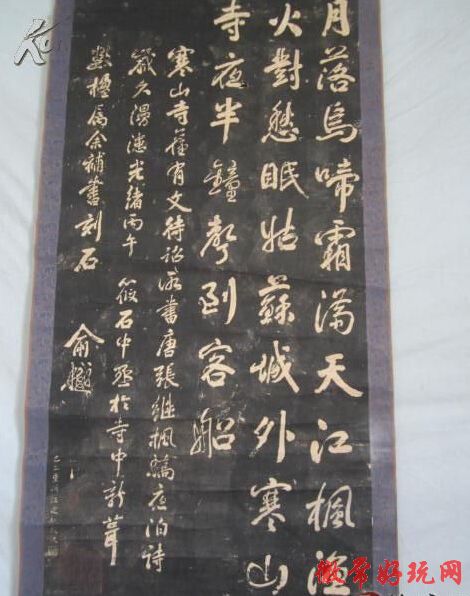 月落烏啼霜滿天江楓漁
火對愁眠姑蘇城外寒山
寺夜半鐘聲到客船
寒山寺舊有文待詔所書唐張繼楓橋夜泊詩
歲久漫漶光緒丙午筱石中丞於寺中新葺
數楹屬余補書刻石
俞樾
好玩网